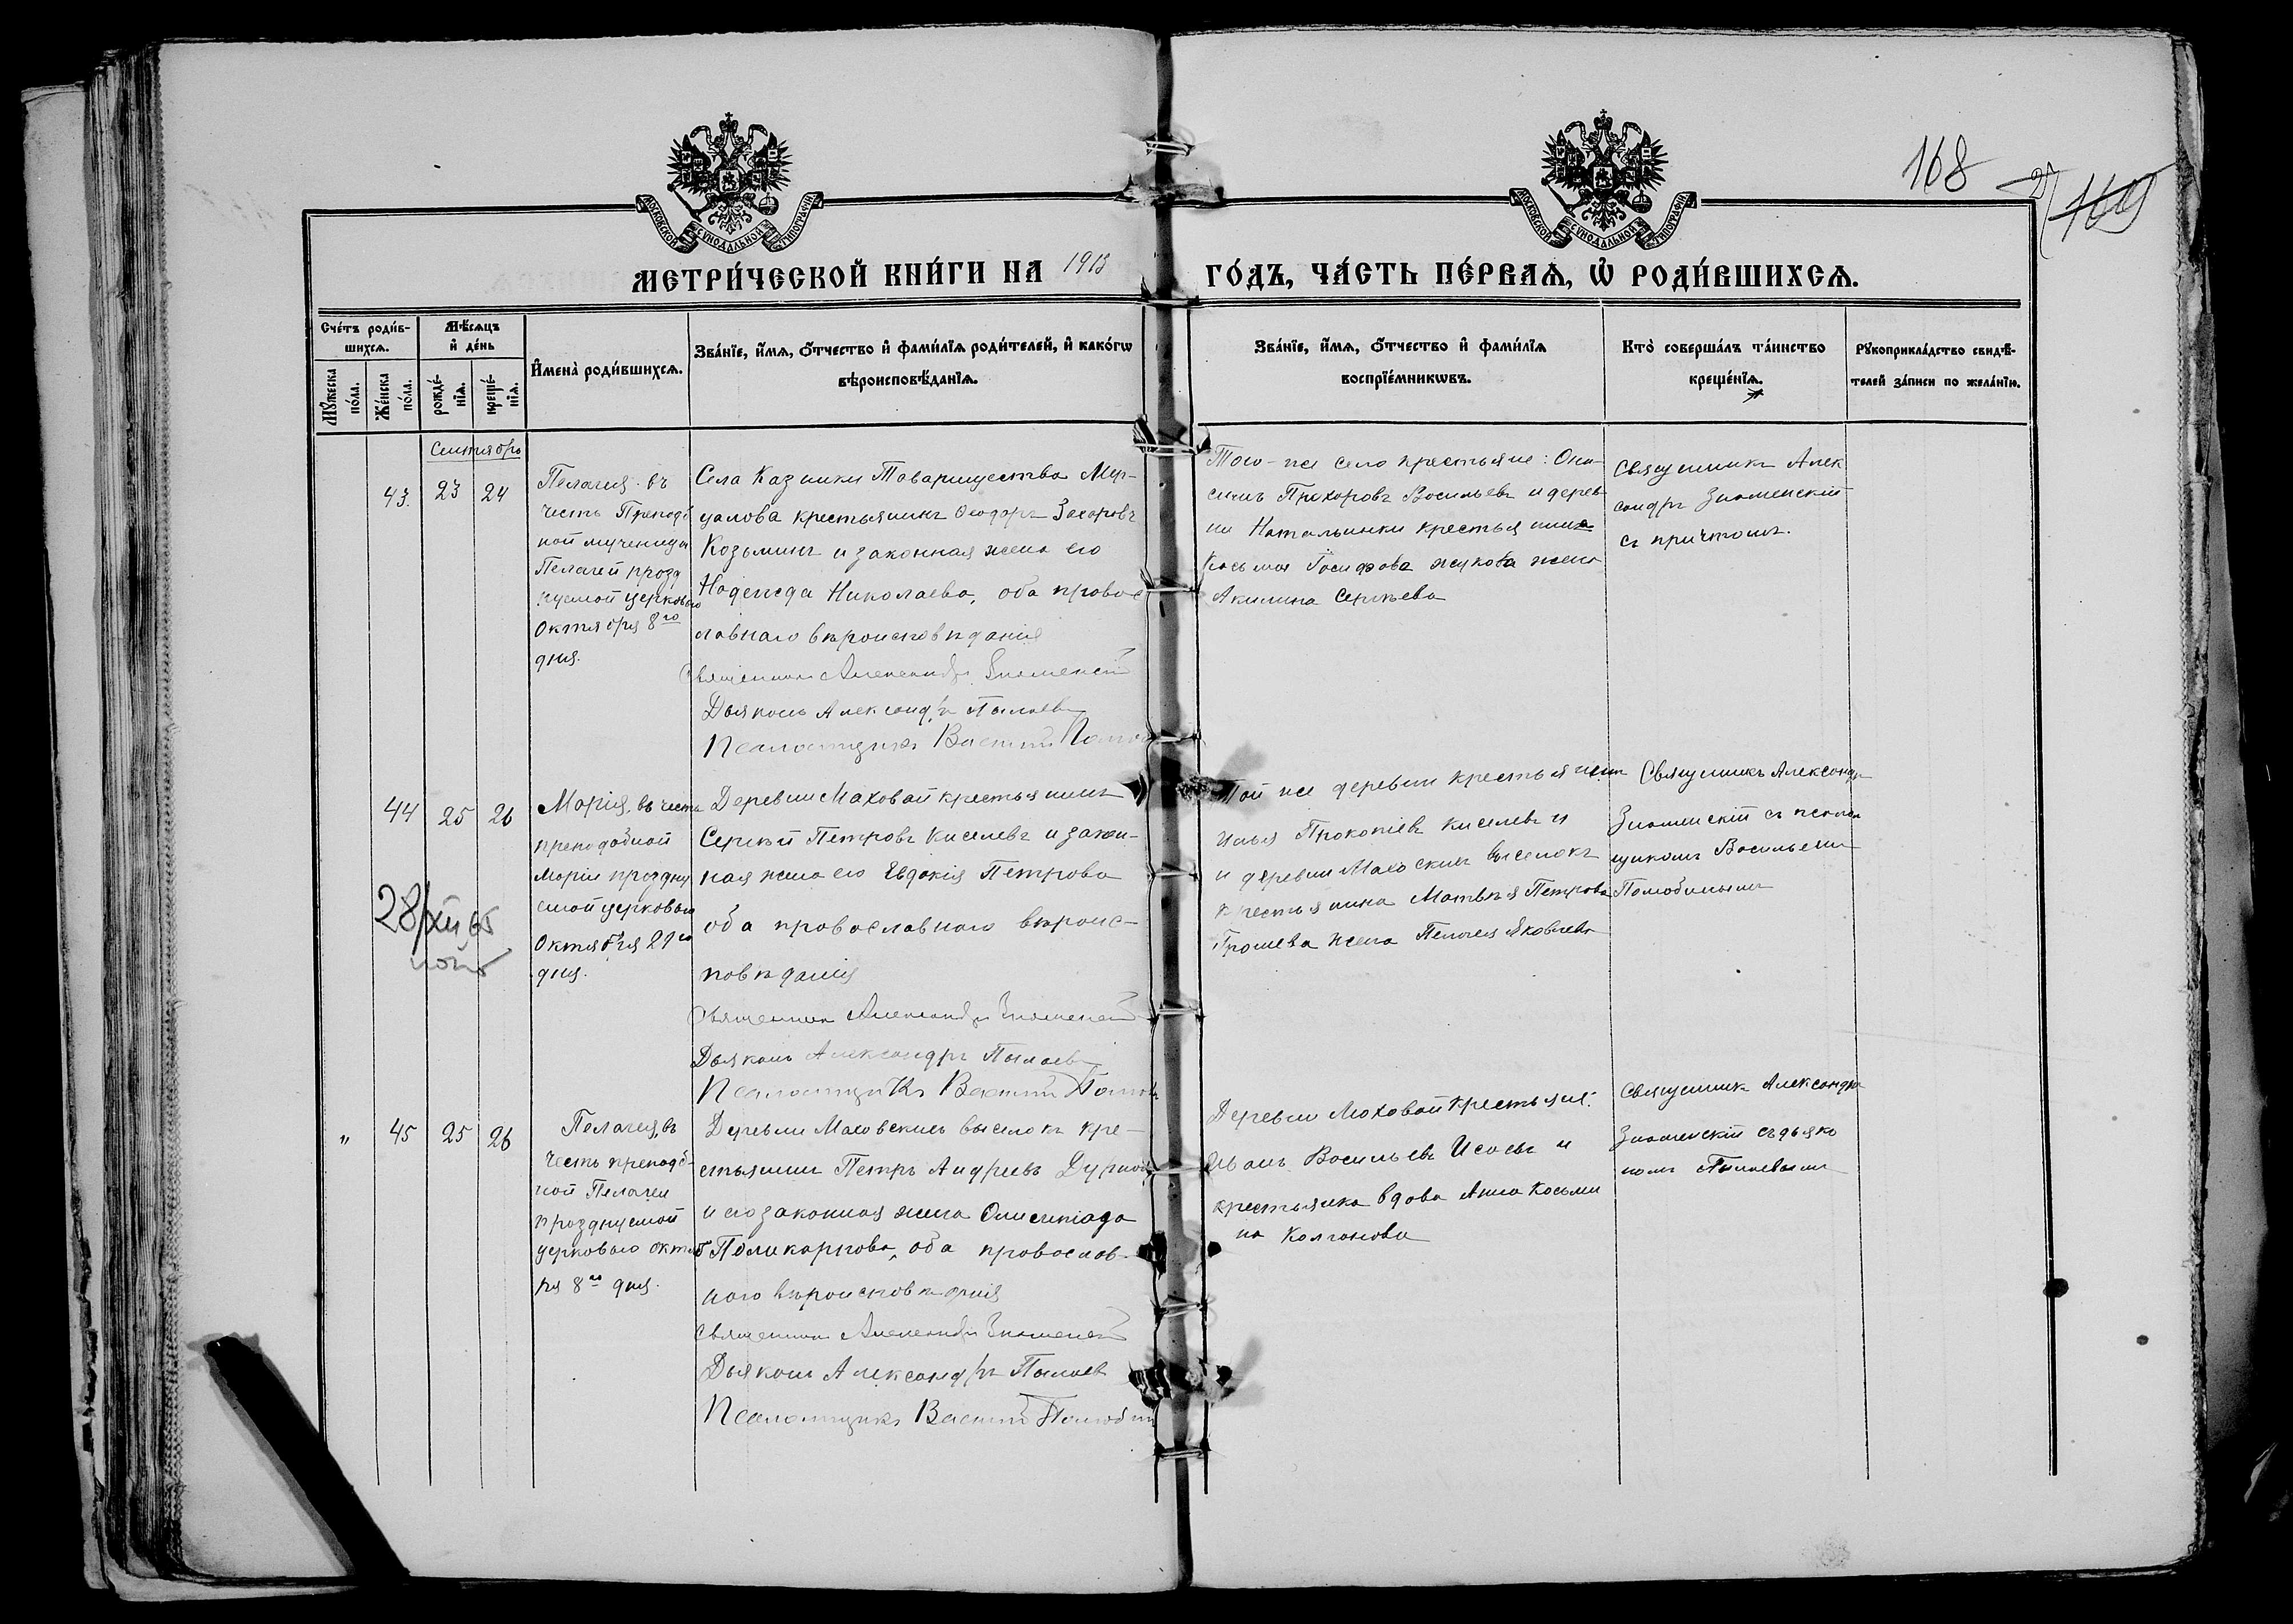 168
169
МОСКОВСКОЙ СУНОДАЛЬНОЙ ТИПОГРАФІИ
МОСКОВСКОЙ СУНОДАЛЬНОЙ ТИПОГРАФІИ
МЕТРИ́ЧЕСКОЙ КНИ́ГИ НА 1913 ГО́ДЪ, ЧА́СТЬ ПЕ́РВАѦ, Ѡ҆ РОДИ́ВШИХСѦ.
Сче́тъ роди́в-
шихсѧ.
Мꙋ́жеска по́ла.
Же́нска по́ла.
Мѣ́сѧцъ
и҆ де́нь
рожде́-
нїѧ.
креще́-
нїѧ.
И҆мена̀ роди́вшихсѧ.
Зва́нїе, и҆́мѧ, ѻ҆́тчество и҆ фами́лїѧ роди́телей, и҆ како́гѡ
вѣроисповѣ́данїѧ.
Зва́нїе, и҆́мѧ, ѻ҆́тчество и҆ фами́лїѧ
воспрїе́мникѡвъ.
Кто̀ соверша́лъ та́инство
креще́нїѧ.
Рꙋкоприкла́дство свидѣ́-
телей за́писи по жела́нїю.
Сентябрь
43. 23 24
Пелагея въ
честь Преподб
ной мученицы
Пелагеи празд
нуемой церковью
Октября 8го
дня.
Села Казинки Товарищества Мур-
цалова крестьянинъ Ѳеодоръ Захаровъ
Козьминъ и законная жена его
Надежда Николаева, оба правос
лавнаго вѣроисповѣданія
Священникъ Александръ Знаменскій
Дьяконъ Александръ Пылаевъ
Псаломщикъ Василій
Того-же села крестьяне: Они-
симъ Прохоровъ Васильевъ и дерев
ни Натальинки крестьянина
Косьмы Іосифова Жукова жена
Акилина Сергѣева
Священникъ Алек
сандръ Знаменскій
съ причтомъ.
44 25 26
28/XII 65
Марія, въ честь
преподобной
Маріи праздну
емой церковью
Октября 29го
дня.
Деревни Маховой крестьянинъ
Сергѣй Петровъ Киселевъ и закон-
ная жена его Евдокія Петрова
оба православнаго вѣроис-
повѣданія
Священникъ Александръ Знаменскій
Дьяконъ Александръ Пылаевъ
Псаломщикъ Василій
Той же деревни крестьянинъ
Илья Прокопіевъ Киселевъ и
и деревни Маховскихъ выселокъ
крестьянина Матвѣя Петрова
Громева жена Пелагея Яковлева
Священникъ Александръ
Знаменскій съ псалом
щикомъ Васильемъ
" 45 25 26
Пелагея, въ
честь преподб-
ной Пелагеи
празднуемой
церковью октяб
ря 8го дня.
Деревни Маховскихъ выселокъ кре-
стьянинъ Петръ Андреевъ Дурновъ
и его законная жена Олимпіада
Поликарпова, оба православ-
наго вѣроисповѣданія
Священникъ Александръ Знаменскій
Дьяконъ Александръ Пылаевъ
Псаломщикъ Василій
Деревни Маховой крестьяне:
Иванъ Васильевъ Исаевъ и
крестьянка вдова Анна Косьми
на Колганова
Священникъ Александръ
Знаменскій съ дьяко
номъ Пылаевымъ